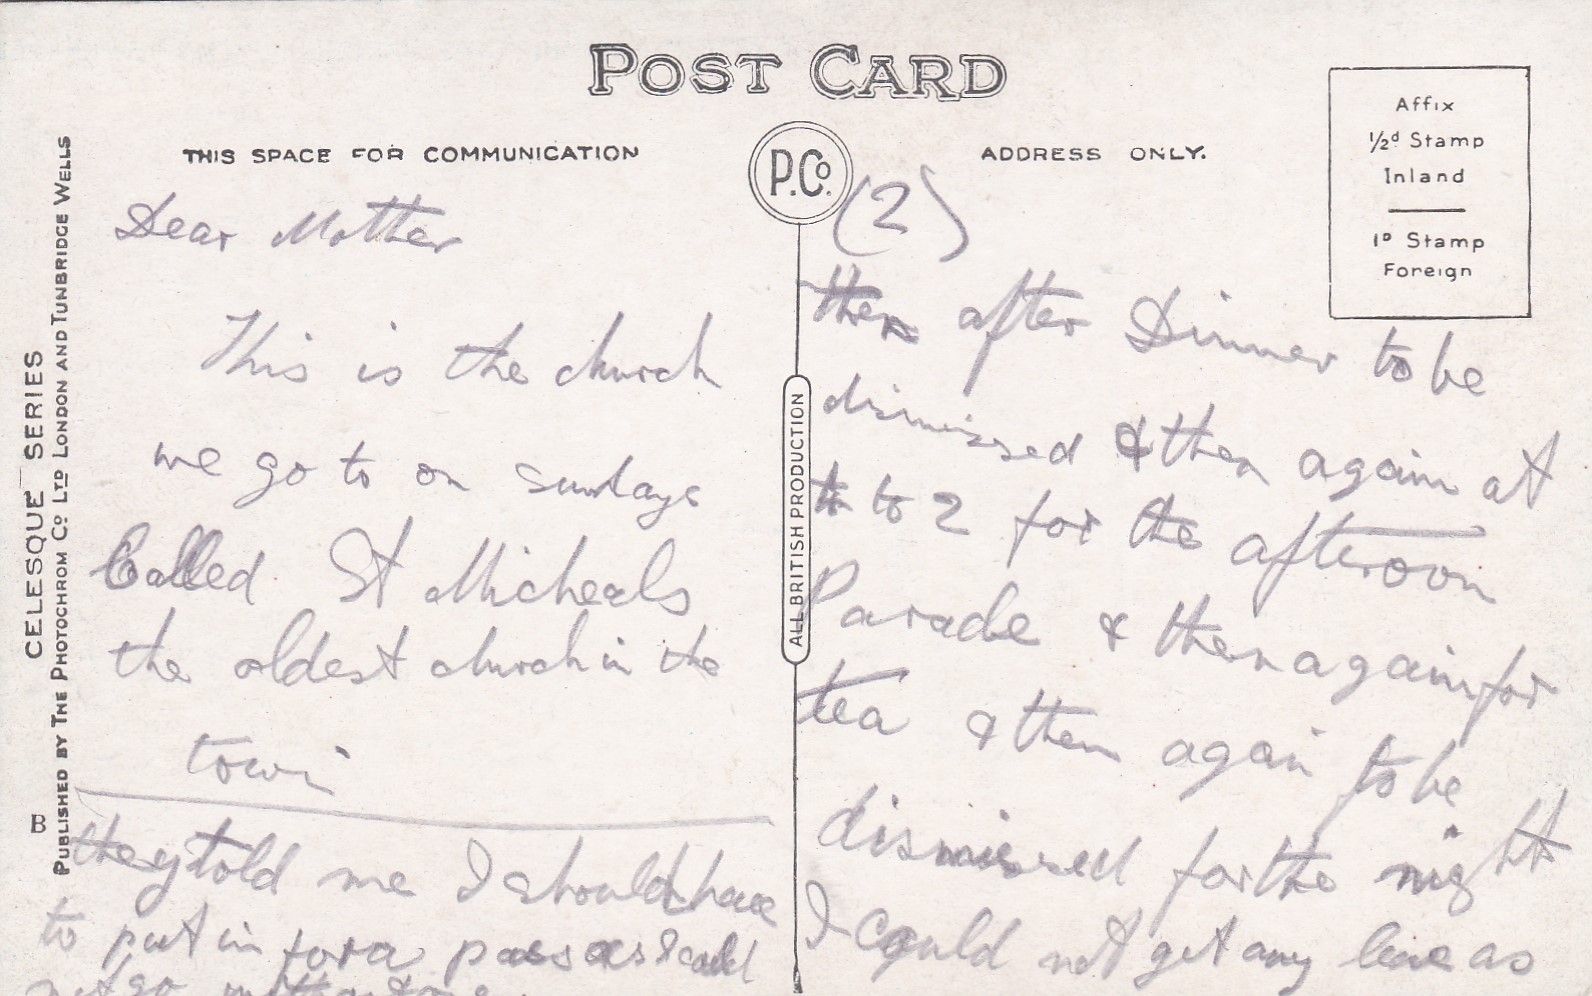 POST CARD
THIS SPACE FOR COMMUNICATION
P.Co.
ADDRESS ONLY.
Affix
½d Stamp
Inland
1D Stamp
Foreign
CELESQUE SERIES
PUBLISHED BY THE PHOTOCHROM CO LTD LONDON AND TUNBRIDGE WELLS
B
ALL BRITISH PRODUCTION
Dear Mother
This is the church
we go to on sundays
Called St Micheals
the oldest church in the
town
they told me I should have
to put in for a pass as I could
not go
(2)
then after Dinner to be
dismissed & then again at
to 2 for the afteroon
Parade & then again for
tea & then again to be
dismissed for the night
I could not get any leave as